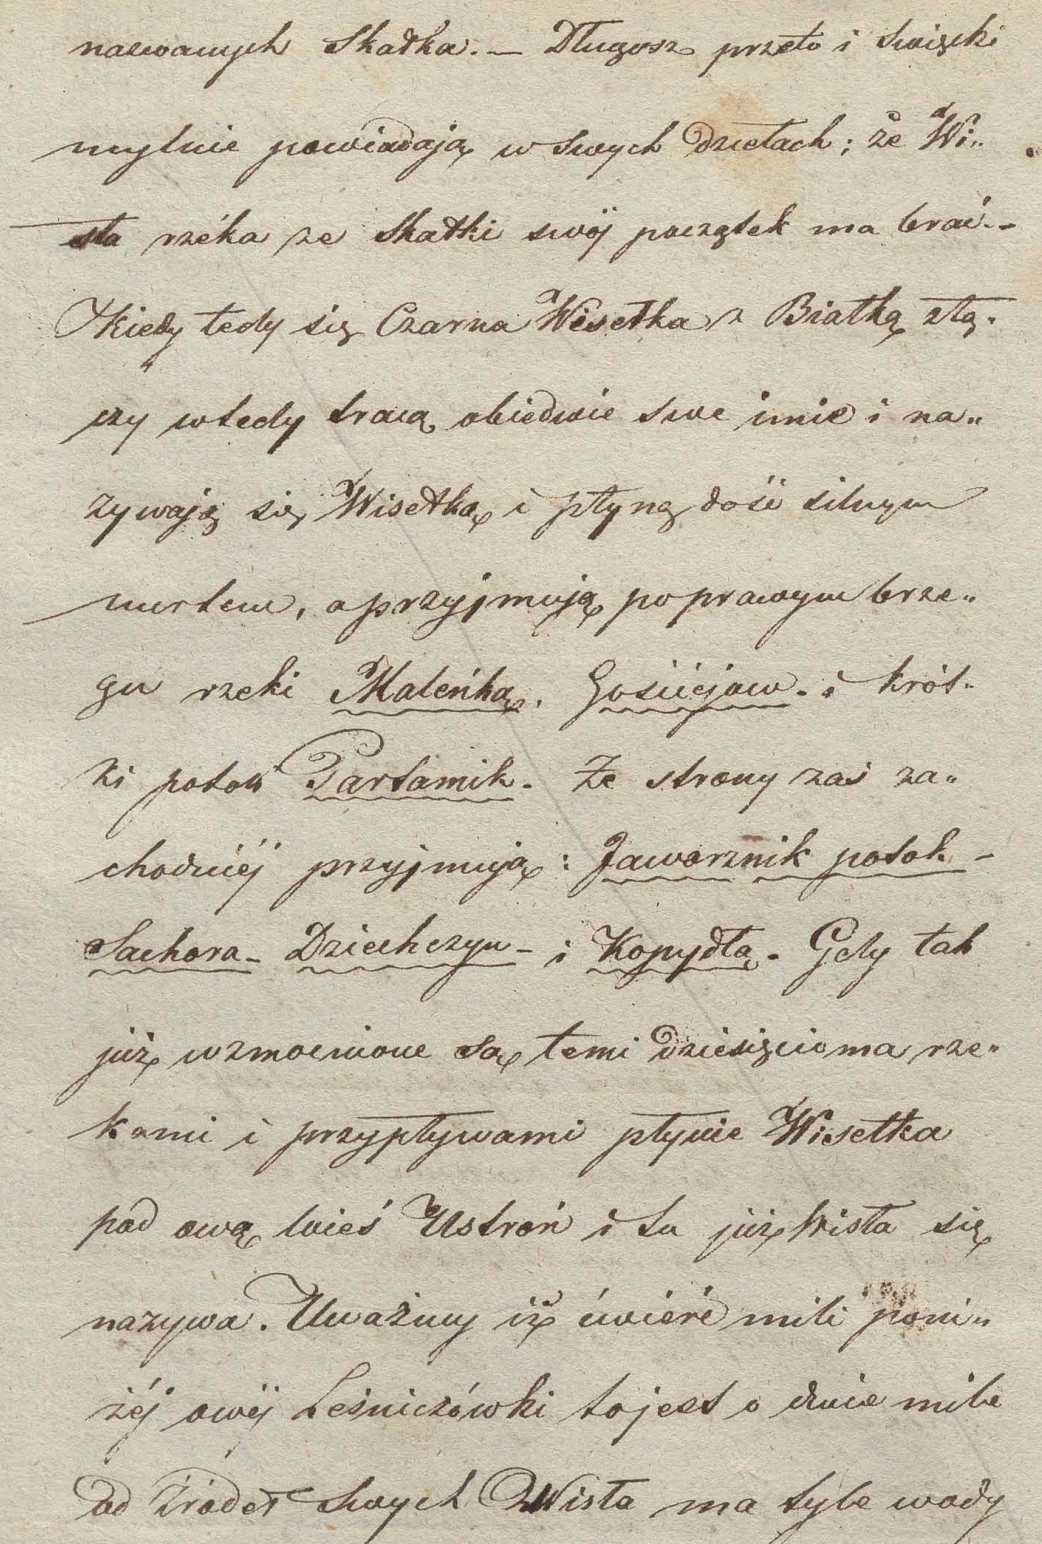 nazwanych Skałka. — Długosz przeto i Swięcki
mylnie powiadają w swych dziełach; że Wi„
sła rzéka ze Skałki swój początek ma brać. –
Kiedy tedy się Czarna Wisełka z Białką złą„
czy wtedy tracą obiedwie swe imie i na„
zywają się Wisełką i płyną dość silnym
nurtem, a przyjmują po prawym brze„
gu rzeki Maleńką, Gościejow. i krót„
ki potok Partamik. Ze strony zaś za„
chodniéj przyjmują: Jawornik potok –
Sachora – Dziechczyn – i Kopydłą. Gdy tak
już wzmocnione są temi dziesięcioma rze„
kami i przypływami płynie Wisełka
pod ową wieś Ustroń i tu już Wisła się
nazywa. Uważmy iż ćwierć mili poni„
żéj owéj Leśniczówki to jest o dwie mile
od źródeł swych Wisła ma tyle wody